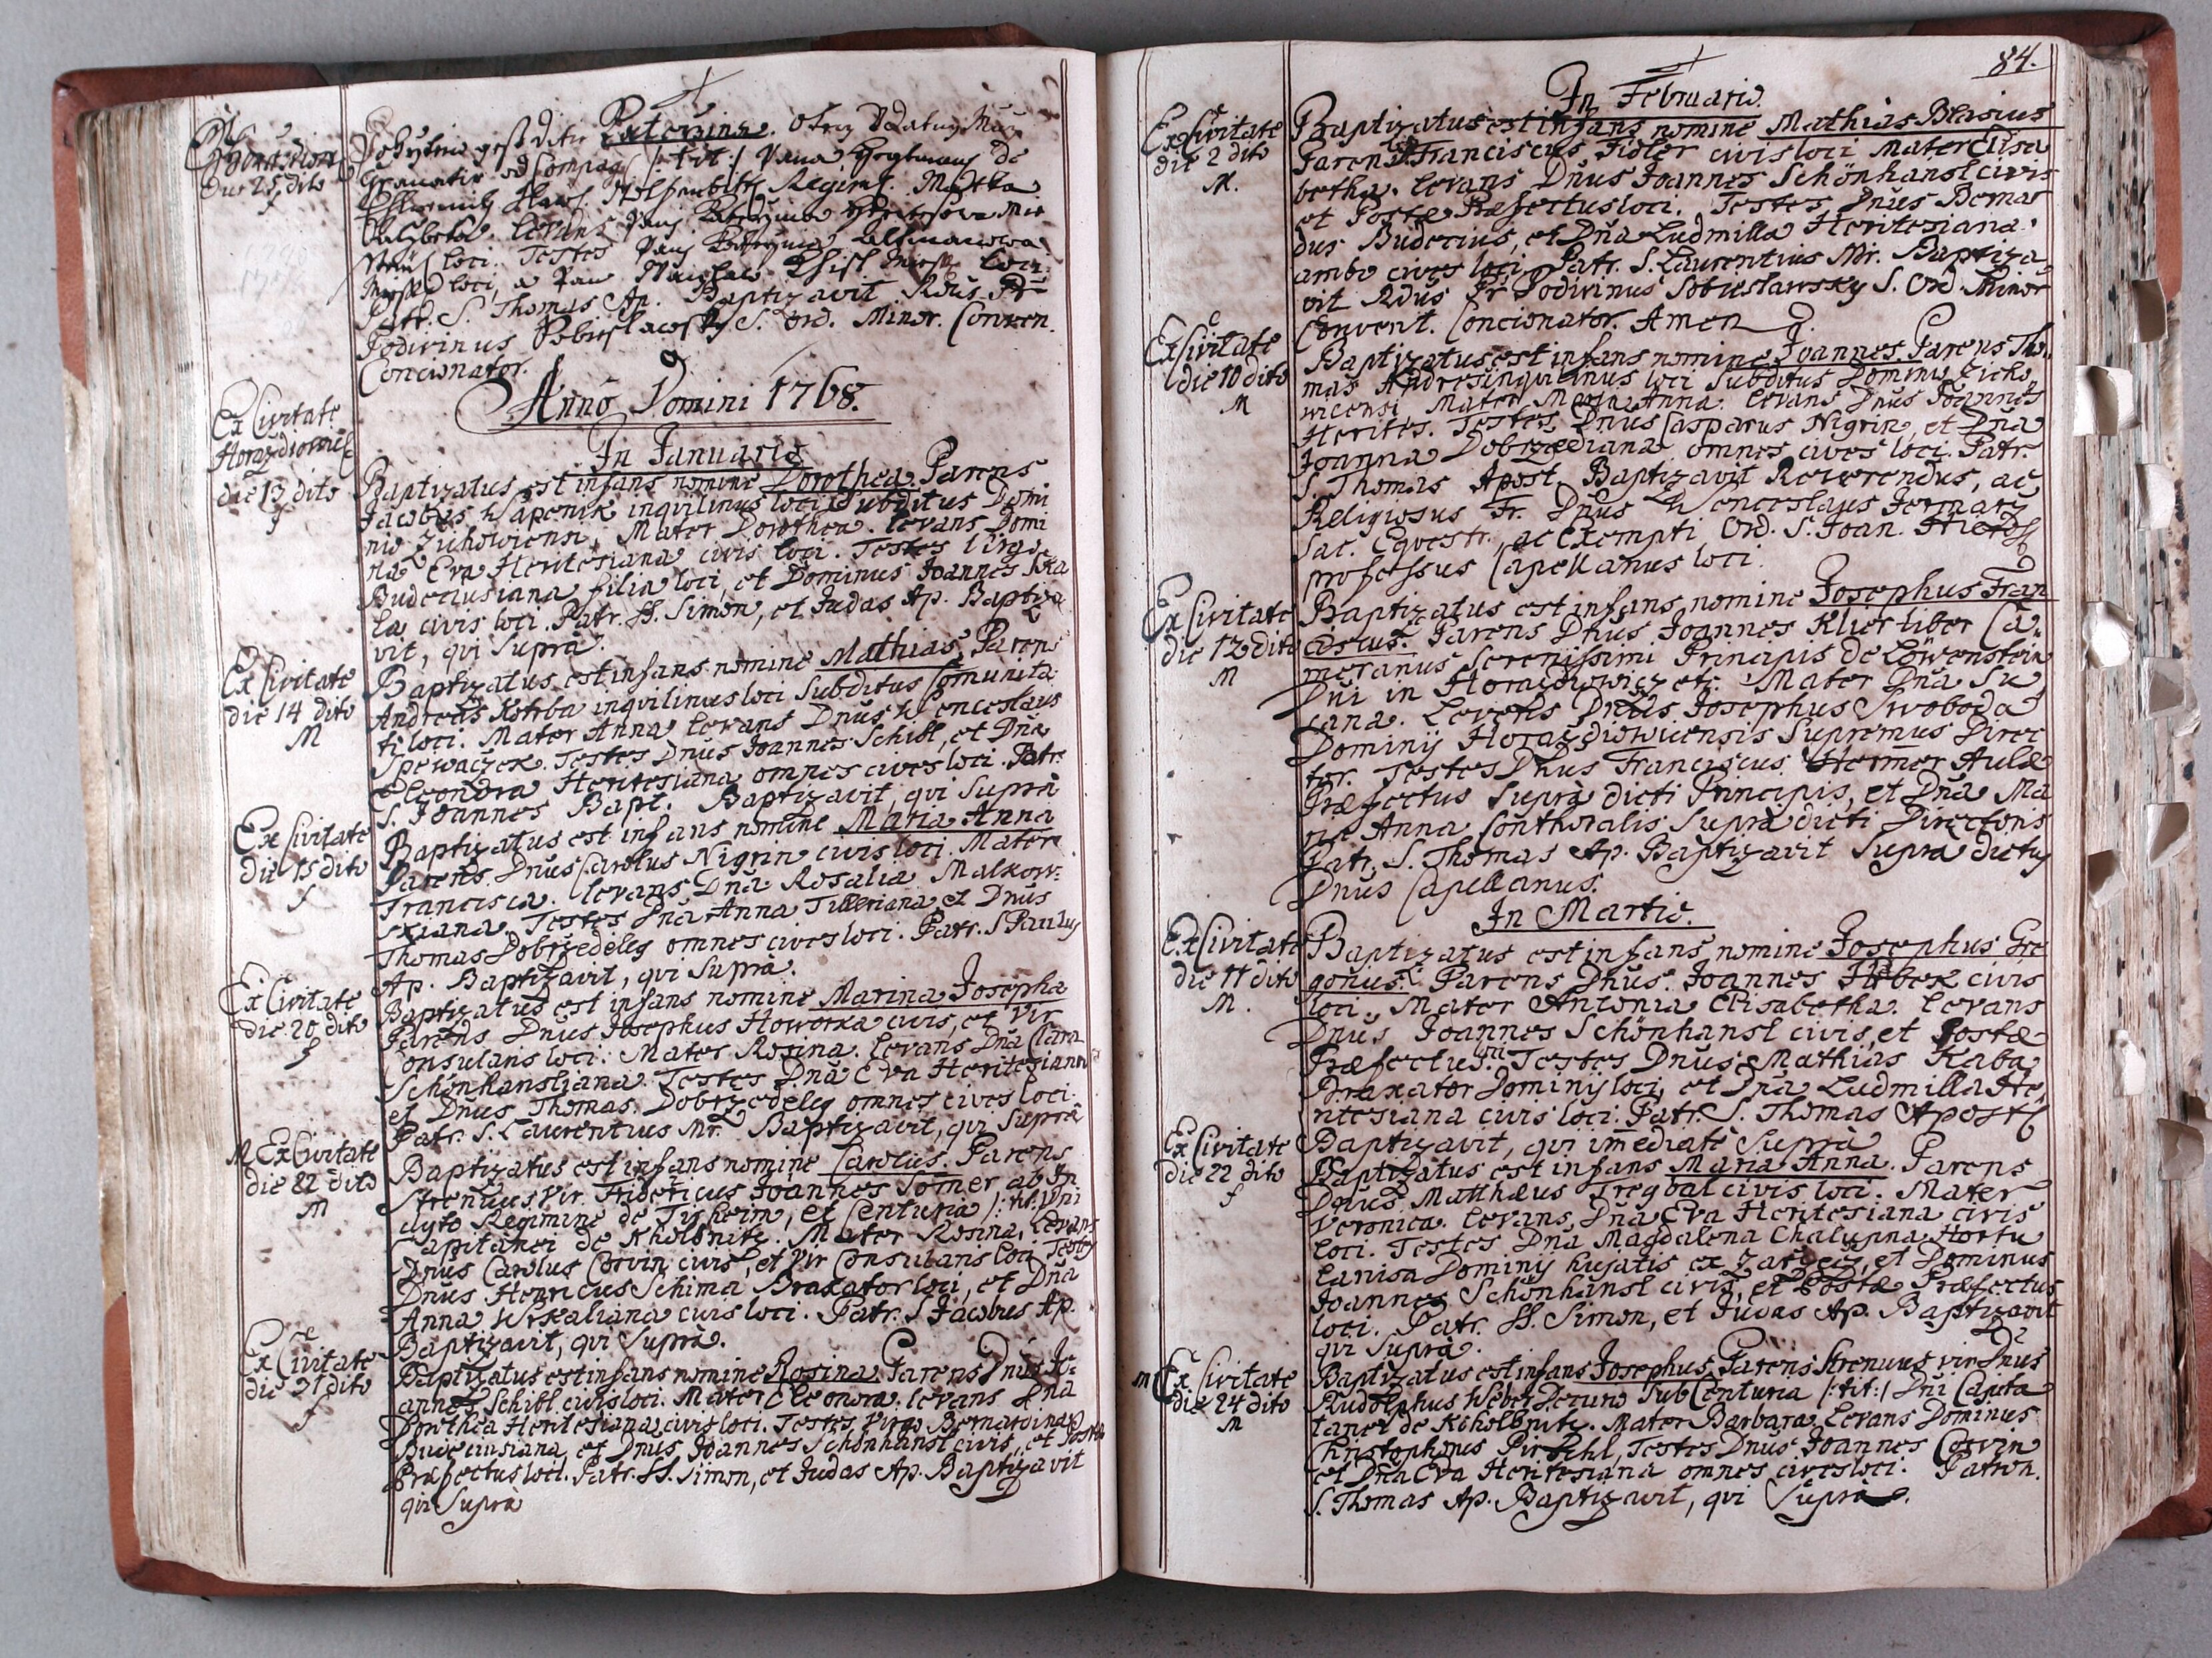 Dus 28 dito
f
Katerina. Otecz
Granatir od
loci. Testes
loci, a Pan
Patr. S. Thomas Ap. Baptizavit Rdus Pr
Podivinus S. Ord. Minor. Conven.
Concionator.
Anno Domini 1768.
In Januario
Ex Civitate
Horazdiowicz
die 13 dito
f
Baptizatus est infans nomine Dorothea Parens
Jacobus Wapenik inqvilinus loci Subditus Domi
nio Zichowiensi, Mater Dorothea. Levans Domi
na Eva Heritesiana civis loci. Testes Virgo
Budeciusiana filia loci, et Dominus Joannes Ska
la civis loci. Patr. SS. Simon, et Judas Ap. Baptiza
vit, qvi Supra.
Ex Civitate
die 14 dito
M
Baptizatus est infans nomine Mathias Parens
Andreas Kstrba inqvilinus loci Subditus Comunita
ti loci. Mater Anna Levans Dnus Wenceslaus
Spewaczek. Testes Dnus Joannes Schibl, et Dna
Eleondra Heritesiana omnes cives loci. Patr.
S. Joannes Bapt. Baptizavit, qvi Supra
Ex Civitate
die 15 dito
f
Baptizatus est infans nomine Maria Anna
Parens Dnus Carolus Nigrin civis loci. Mater
Francisca. Levans Dna Rosalia Malkow-
skiana. Testes Dna Anna Tilleriana et Dnus
Thomas Dobrzedeleg omnes cives loci. Patr. S Paulus
Ap. Baptizavit, qvi Supra.
Ex Civitate
die 20 dito
f
Baptizatus est infans nomine Marina Josepha
Parens Dnus Josephus Howorka civis, et Vir
Consularis loci. Mater Rosina. Levans Dna Clara
Schönhansliana. Testes Dna Eva Heritesiana
et Dnus Thomas Dobrzedeleg omnes cives loci.
Patr. S. Laurentius Mr. Baptizavit, qvi Supra
M Ex Civitate
die 22 dito
M
Baptizatus est infans nomine Carolus Parens
Strenuus Vir Fridericus Joannes Somer ab In
clyto Regimine de Tisheim, et Centuria /: tit: Dni
Capitanei de Kholbnitz. Mater Rosina, Levans
Dnus Carolus Corvin civis, et Vir Consularis loci Testes
Dnus Henricus Schima Braxator loci, et Dna
Anna Wrkaliana civis loci. Patr. S Jacobus Ap.
Baptizavit, qvi Supra.
Ex Civitate
die 21 dito
f
Baptizatus est infans nomine Rosina Parens Dnus Jo-
annes Schibl civis loci. Mater Eleonora. Levans Dna
Dorothea Heritesiana civis loci. Testes Virgo Bernardina
Budeciusiana et Dnus Joannes Schönhansl civis, et Posta
Præfectus loci. Patr. SS. Simon, et Judas Ap. Baptizavit
qvi Supra
84.
In Februario.
Ex Civitate
die 2 dito
M.
Baptizatus est infans nomine Mathias Blasius
Parens Franciscus Fidler civis loci Mater Elisa
betha. Levans Dnus Joannes Schönhansl civis
et Postæ Præfectus loci. Testes Dnus Bernar
dus Budecius, et Dna Ludmilla Heritesiana
ambo cives loci Patr. S. Laurentius Mr. Baptiza
vit Rdus Pr Podivinus Sobieslawsky S. Ord. Minor
Convent. Concionator. Amen
Ex Civitate
die 10 dito
M
Baptizatus est infans nomine Joannes. Parens Tho
mas Andres inqvilinus loci Subditus Dominio Zicho
wicensi, Mater Maria Anna. Levans Dnus Joannes
Herites. Testes Dnus Casparus Nigrin, et Dna
Joanna Dobrzediana omnes cives loci. Patr.
S. Thomas Apost. Baptizavit Reverendus, ac
Religiosus Fr. Dnus Wenceslaus Jermarz
Sac. Eqvestr., ac Exempti Ord. S. Joan. Hieros
professus Capellanus loci.
Ex Civitate
die 12 dito
M
Baptizatus est infans nomine Josephus Fran
ciscus. Parens Dnus Joannes Klier liber Ca
meranus Serenissimi Principis de Löwenstein
Dni in Horazdiowicz etc. Mater Dna Su
sana. Levens Dnus Josephus Swoboda
Dominij Horazdiowicensis Supremus Direc
tor. Testes Dnus Franciscus Hermer Aulæ
Præfectus Supra dicti Principis, et Dna Ma
ria Anna Conthoralis Supra dicti Directoris
Patr. S. Thomas Ap. Baptizavit Supra dictus
Dnus Capellanus.
In Martio.
Ex Civitate
die 11 dito
M.
Baptizatus est infans nomine Josephus Gre
gorius. Parens Dnus. Joannes Hrbek civis
loci. Mater Antonia Elisabetha. Levans
Dnus Joannes Schönhansl civis, et Postæ
Præfectus loci. Testes Dnus Mathias Kaba
Braxator Dominij loci, et Dna Ludmilla He
ritesiana civis loci. Patr. S. Thomas Apost
Baptizavit, qvi imediatè Supra
Ex Civitate
die 22 dito
f
Baptizatus est infans Maria Anna. Parens
Dnus Matthæus Tregbal civis loci. Mater
Veronica. Levans Dna Eva Heritesiana civis
loci. Testes Dna Magdalena Chalupna Hortu
lanisa Dominij hujatis ex Zarzecz, et Dominus
Joannes Schönhansl civis, et Postæ Præfectus
loci. Patr. SS. Simon, et Judas Ap. Baptizavit
qvi Supra.
M Ex Civitate
die 24 dito
M
Baptizatus est infans Josephus, Parens Strenuus vir Dnus
Rudolphus Weber Sub Centuria /: tit: / Dni Capita
tanei de Kcholbnitz. Mater Barbara Levans Dominus
Christophorus Testes Dnus Joannes Corvin
et Dna Eva Heritesiana omnes cives loci. Patron.
S. Thomas Ap. Baptizavit, qvi Supra.